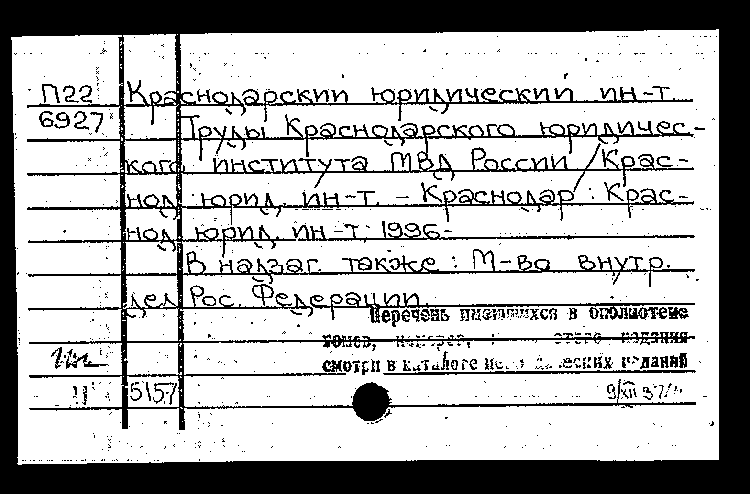 П22 Краснодарский юридический ин-т.
6927 Труды Краснодарского юридичес-
кого института МВД России / Крас-
нод. юрид. ин-т. - Краснодар : Крас-
нод. юрид. ин-т, 1996-
В надзаг. также: М-во внутр.
дел Рос. Федерации.
Перечень имеющихся в библиотеке
томов, номеров, этого издания
смотри в каталоге периодических изданий
5157